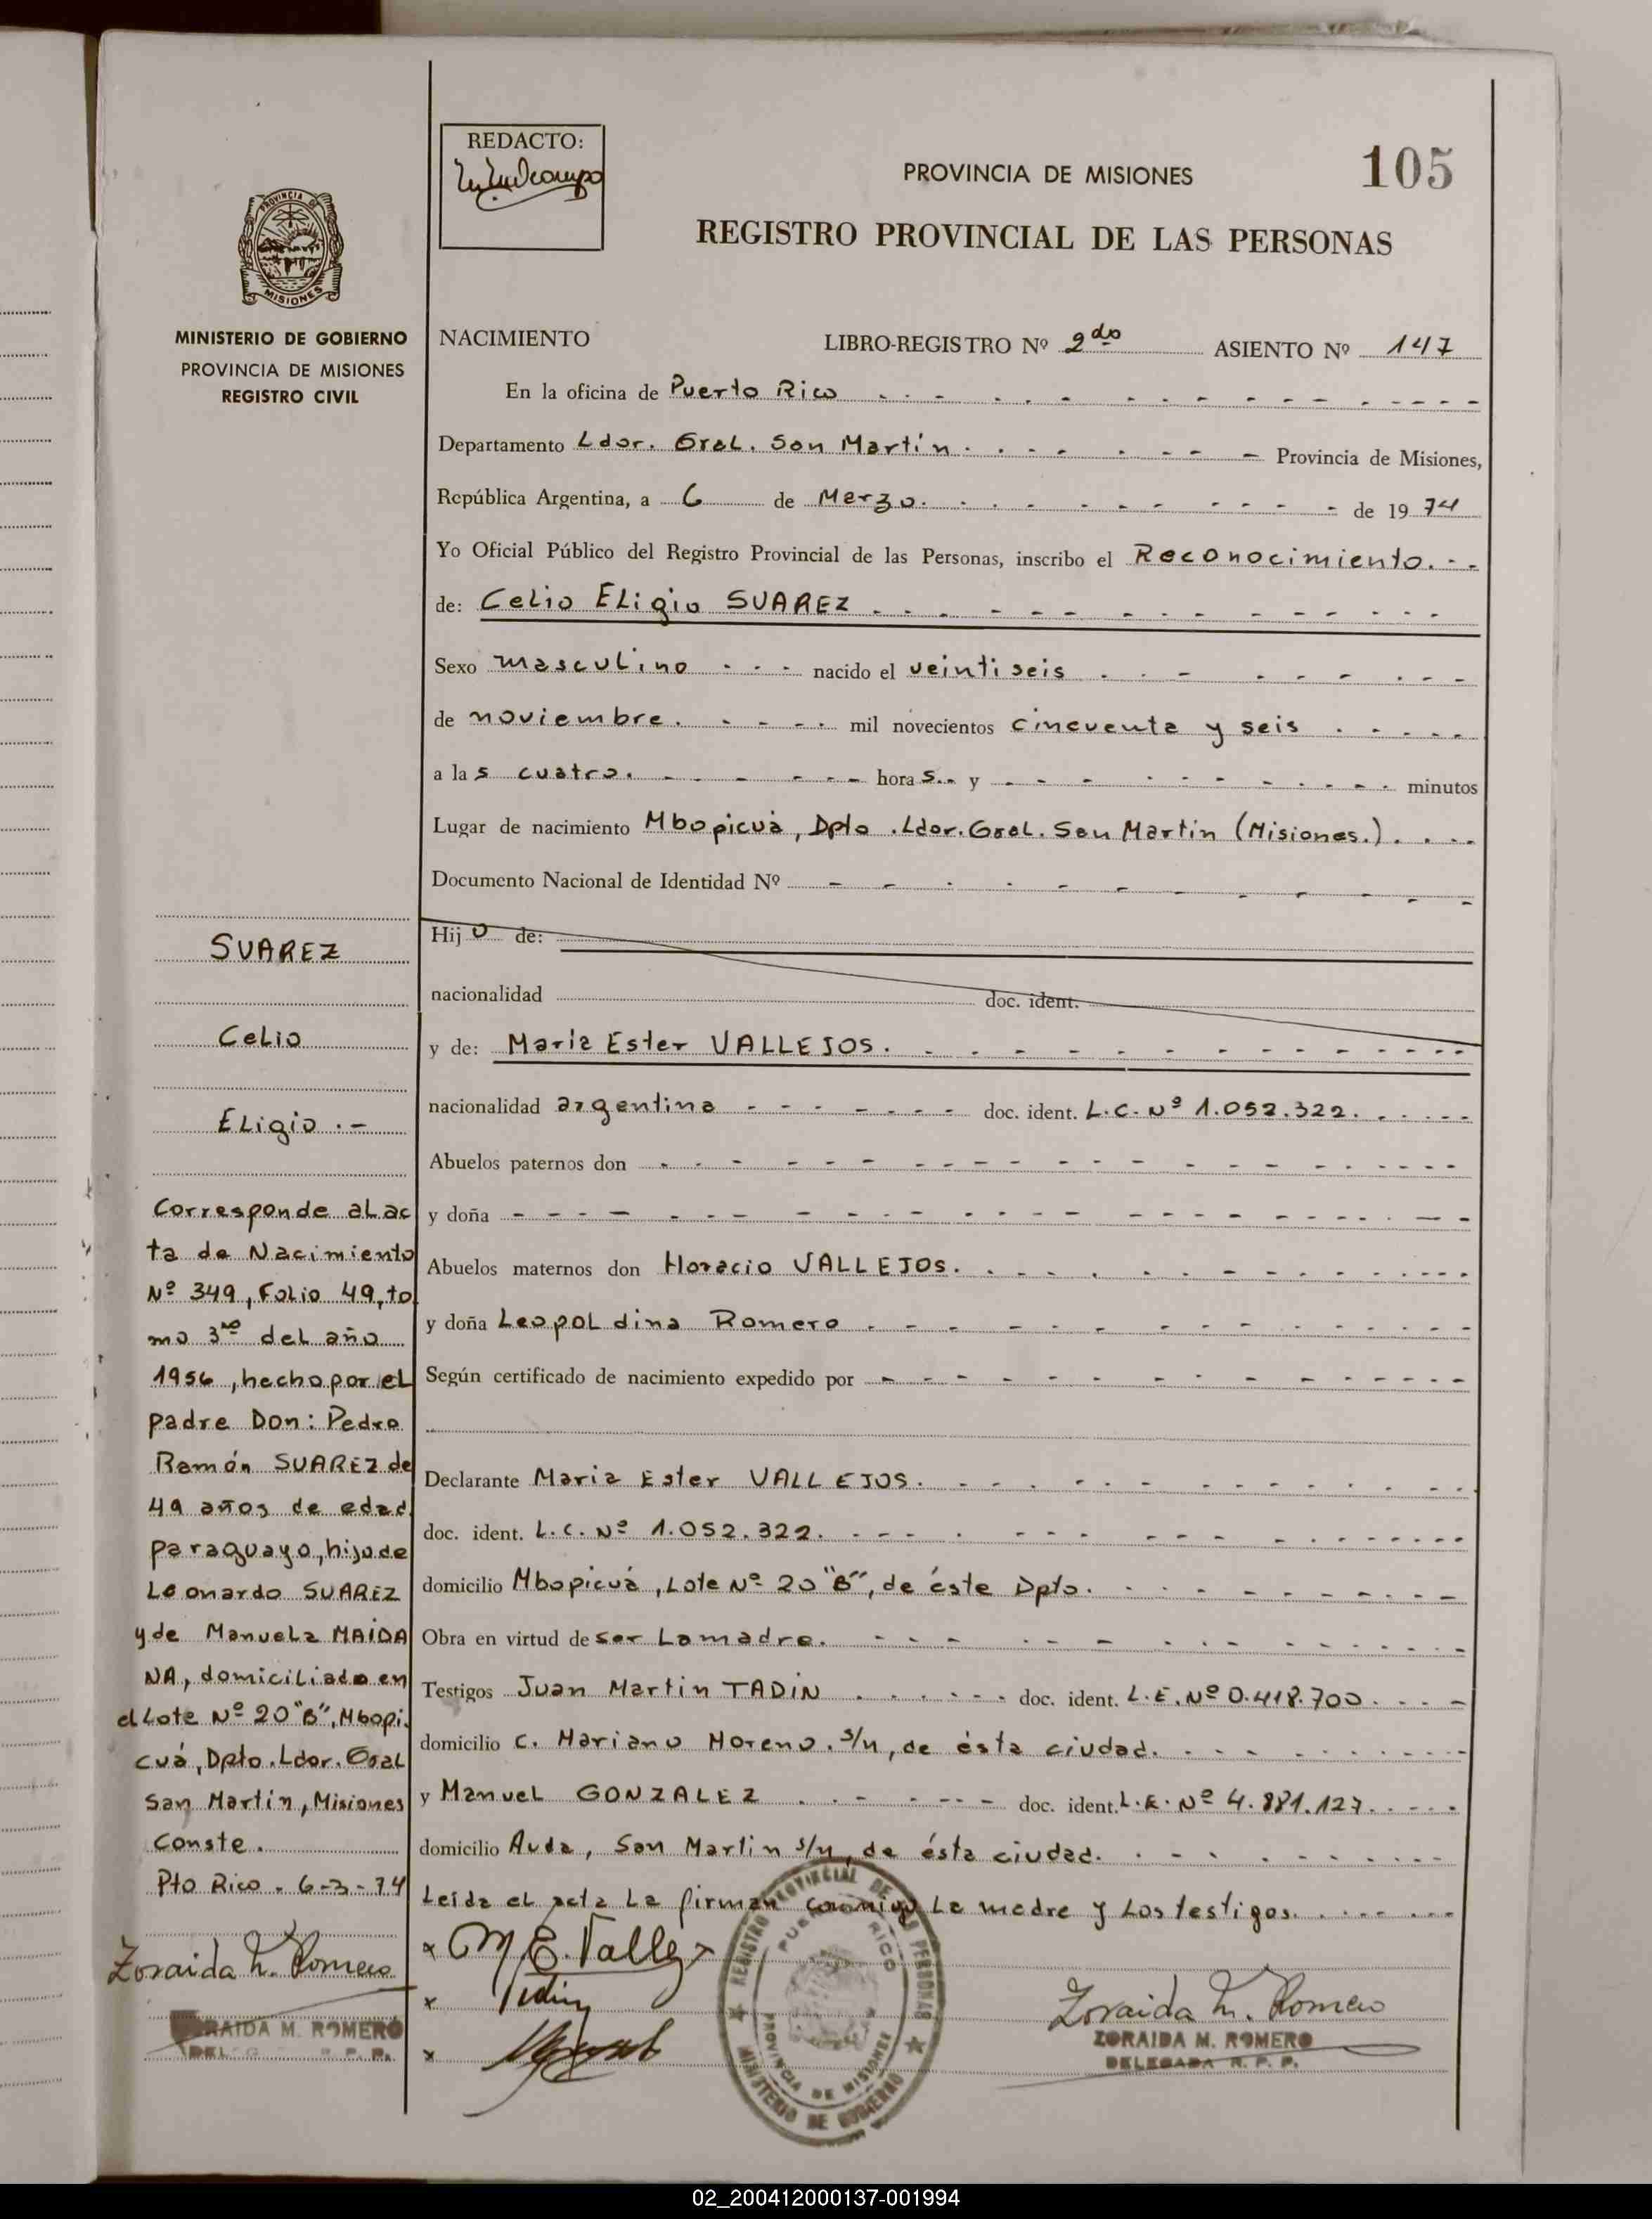 REDACTO:
105
PROVINCIA DE MISIONES
REGISTRO PROVINCIAL DE LAS PERSONAS
PROVINCIA DE
MISIONES
MINISTERIO DE GOBIERNO
PROVINCIA DE MISIONES
REGISTRO CIVIL
NACIMIENTO LIBRO-REGISTRO Nº 2do ASIENTO Nº 147
En la oficina de Puerto Rico
Departamento Ldor. Gral. San Martín. Provincia de Misiones,
República Argentina, a 6 de Marzo. de 1974
Yo Oficial Público del Registro Provincial de las Personas, inscribo el Reconocimiento.
de: Celio Eligio SUAREZ
Sexo masculino nacido el veintiseis
de noviembre. mil novecientos cincuenta y seis
a las cuatro. horas. y minutos
Lugar de nacimiento Mbopicuà, Dpto. Ldor. Gral. San Martín (Misiones.)
Documento Nacional de Identidad Nº
Hijo de:
nacionalidad doc. ident.
y de: María Ester VALLEJOS.
nacionalidad argentina doc. ident. L.C. Nº 1.052.322.
Abuelos paternos don
y doña
Abuelos maternos don Horacio VALLEJOS.
y doña Leopoldina Romero
Según certificado de nacimiento expedido por
Declarante María Ester VALLEJOS.
doc. ident. L.C. Nº 1.052.322.
domicilio Mbopicuá, Lote Nº 20 "B", de éste Dpto.
Obra en virtud de ser La madre.
Testigos Juan Martin TADIN doc. ident. L.E. Nº 0.418.700.
domicilio C. Mariano Moreno. s/n, de ésta ciudad.
y Manuel GONZALEZ doc. ident. L.E. Nº 4.881.127.
domicilio Avda, San Martin s/n, de ésta ciudad.
Leída el acta La firman conmigo La madre y Los testigos.
x M E. Vallejos
x Tadin
x
Zoraida M. Romero
ZORAIDA M. ROMERO
DELEGADA R. P. P.
REGISTRO PROVINCIAL DE LAS PERSONAS
MINISTERIO DE GOBIERNO
PUERTO RICO
PROVINCIA DE MISIONES
SUAREZ
Celio
Eligio.-
Corresponde al ac
ta de Nacimiento
Nº 349, Folio 49, to
mo 3ro del año
1956, hecho por el
padre Don: Pedro
Ramón SUAREZ de
49 años de edad
paraguayo, hijo de
Leonardo SUAREZ
y de Manuela MAIDA
NA, domiciliado en
el Lote Nº 20 "B", Mbopi
cuá, Dpto. Ldor. Gral
San Martin, Misiones
Conste.
Pto Rico. 6-3-74
Zoraida M. Romero
ZORAIDA M. ROMERO
02_200412000137-001994